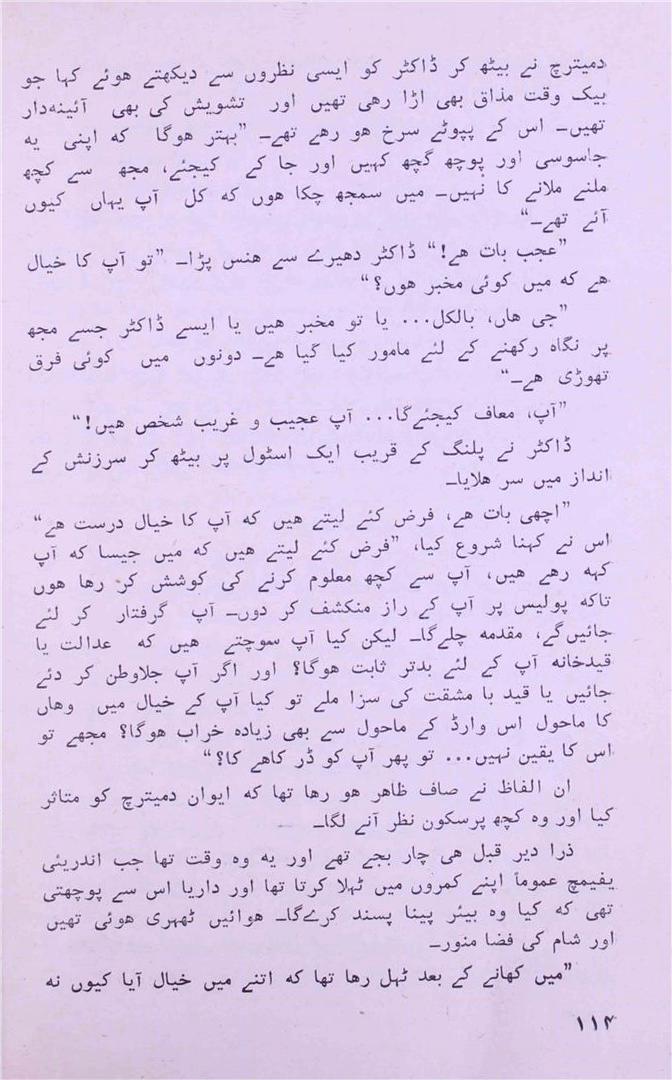 دمیترچ نے بیٹھ کر ڈاکٹر کو ایسی نظروں سے دیکھتے ھوئے کہا جو
بیک وقت مذاق بھی اڑا رھی تھیں اور تشویش کی بھی آئینہدار
تھیں۔ اس کے پپوٹے سرخ ھو رھے تھے۔ ”بہتر ھوگا کہ اپنی یہ
جاسوسی اور پوچھ گچھ کہیں اور جا کے کیجئے، مجھ سے کچھ
ملنے ملانے کا نہیں۔ میں سمجھ چکا ھوں کہ کل آپ یہاں کیوں
آئے تھے۔“
”عجب بات ھے!“ ڈاکٹر دھیرے سے ھنس پڑا۔ ”تو آپ کا خیال
ھے کہ میں کوئی مخبر ھوں؟“
”جی ھاں، بالکل... یا تو مخبر ھیں یا ایسے ڈاکٹر جسے مجھ
پر نگاہ رکھنے کے لئے مامور کیا گیا ھے۔ دونوں میں کوئی فرق
تھوڑی ھے۔“
”آپ، معاف کیجئےگا... آپ عجیب و غریب شخص ھیں!“
ڈاکٹر نے پلنگ کے قریب ایک اسٹول پر بیٹھ کر سرزنش کے
انداز میں سر ھلایا۔
”اچھی بات ھے، فرض کئے لیتے ھیں کہ آپ کا خیال درست ھے“
اس نے کہنا شروع کیا، ”فرض کئے لیتے ھیں کہ میں جیسا کہ آپ
کہہ رھے ھیں، آپ سے کچھ معلوم کرنے کی کوشش کر رھا ھوں
تاکہ پولیس پر آپ کے راز منکشف کر دوں۔ آپ گرفتار کر لئے
جائیں گے، مقدمہ چلےگا۔ لیکن کیا آپ سوچتے ھیں کہ عدالت یا
قیدخانہ آپ کے لئے بدتر ثابت ھوگا؟ اور اگر آپ جلاوطن کر دئے
جائیں یا قید با مشقت کی سزا ملے تو کیا آپ کے خیال میں وھاں
کا ماحول اس وارڈ کے ماحول سے بھی زیادہ خراب ھوگا؟ مجھے تو
اس کا یقین نہیں... تو پھر آپ کو ڈر کاھے کا؟“
ان الفاظ نے صاف ظاھر ھو رھا تھا کہ ایوان دمیترچ کو متاثر
کیا اور وہ کچھ پرسکون نظر آنے لگا۔
ذرا دیر قبل ھی چار بجے تھے اور یہ وہ وقت تھا جب اندریئی
یفیمچ عموماً اپنے کمروں میں ٹہلا کرتا تھا اور داریا اس سے پوچھتی
تھی کہ کیا وہ بیئر پینا پسند کرےگا۔ ھوائیں ٹھہری ھوئی تھیں
اور شام کی فضا منور۔
”میں کھانے کے بعد ٹہل رھا تھا کہ اتنے میں خیال آیا کیوں نہ
۱۱۴